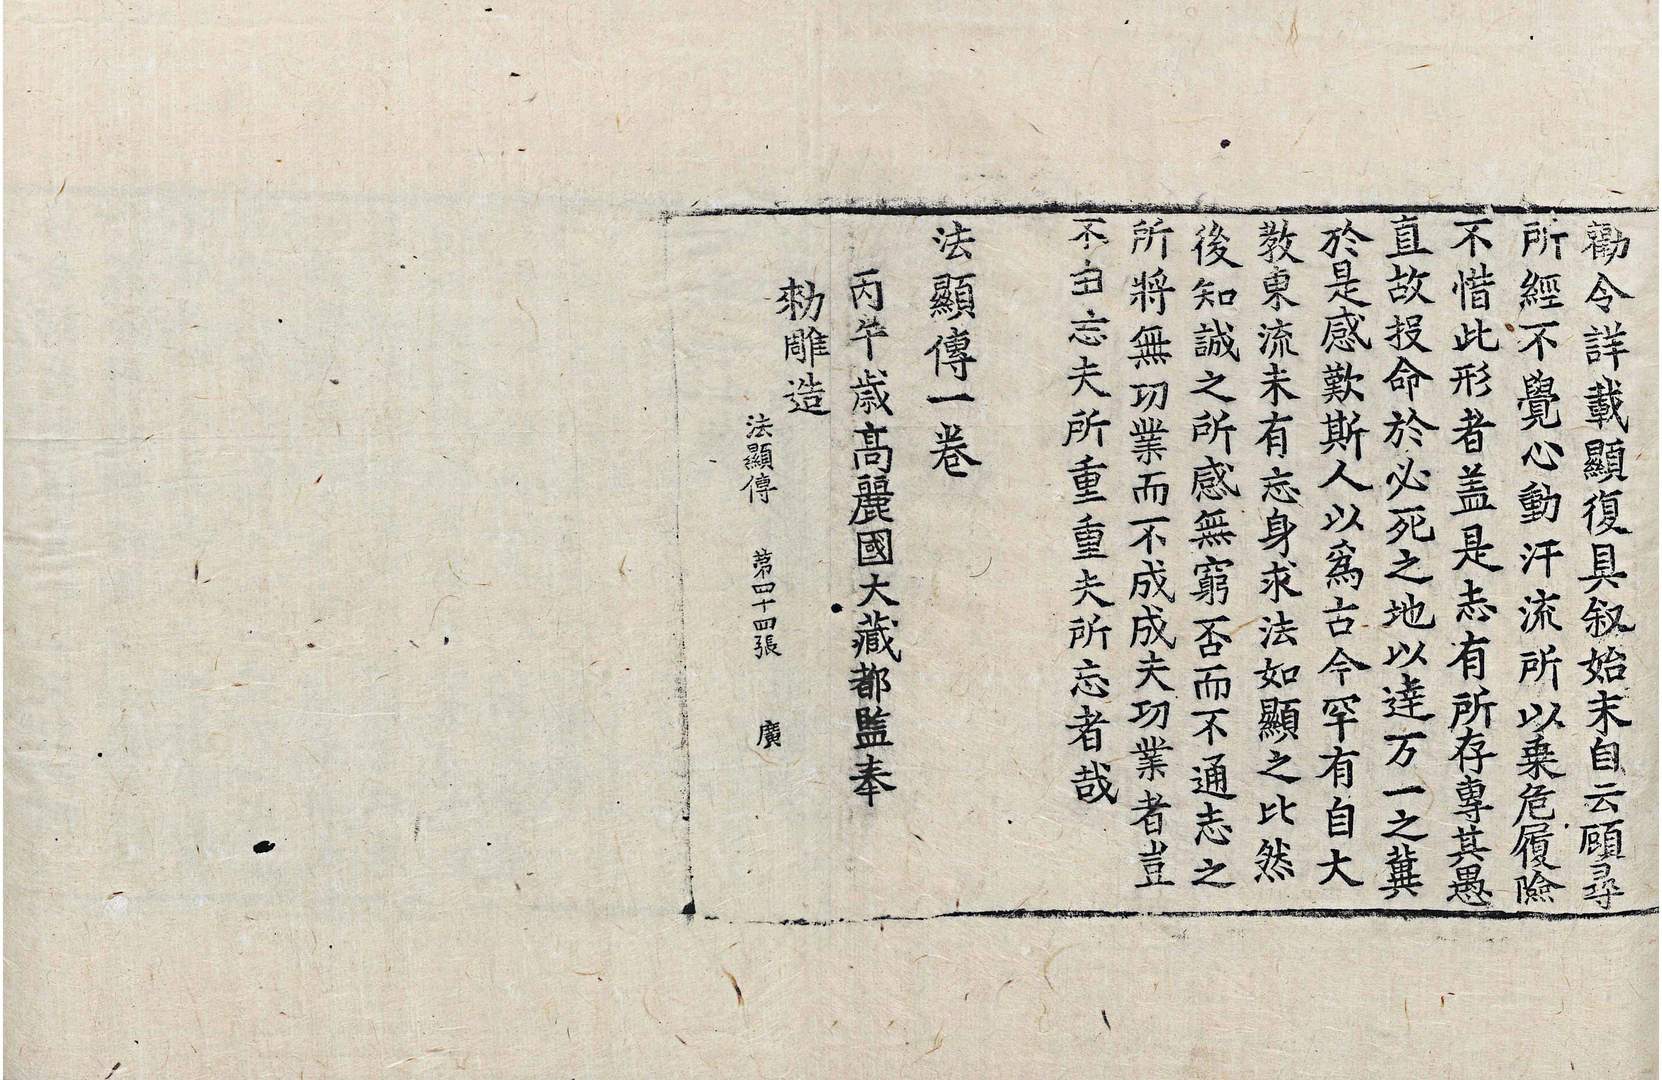 勸令詳載顯復具叙始末自云顧尋
所經不覺心動汗流所以乗危履險
不惜此形者盖是志有所存專其愚
直故投命於必死之地以達万一之冀
於是感歎斯人以爲古今罕有自大
教東流未有忘身求法如顯之比然
後知誠之所感無窮否而不通志之
所將無功業而不成成夫功業者豈
不由忘夫所重重夫所忘者哉
法顯傳一卷
丙午歳髙麗國大藏都監奉
勑雕造
法顯傳 第四十四張 廣